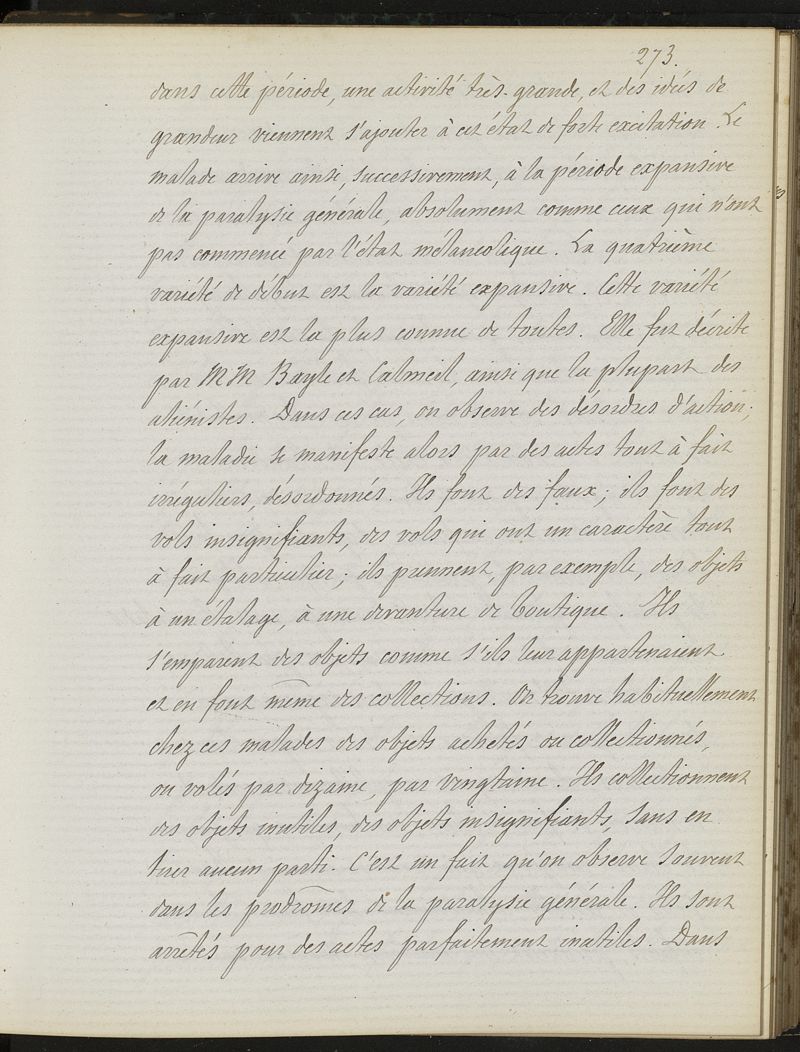 273.
dans cette période, une activité très-grande, et des idées de
grandeur viennent s'ajouter à cet état de forte excitation. Le
malade arrive ainsi, successivement, à la période expansive
de la paralysie générale, absolument comme ceux qui n'ont
pas commencé par l'état mélancolique. La quatrième
variété de début est la variété expansive. Cette variété
expansive est la plus connue de toutes. Elle fut décrite
par MM Bayle et Calmeil, ainsi que la plupart des
aliénistes. Dans ces cas, on observe des désordres d'action;
la maladie se manifeste alors par des actes tout à fait
irréguliers, désordonnés. Ils font des faux; ils font des
vols insignifiants, des vols qui ont un caractère tout
à fait particulier; ils prennent, par exemple, des objets
à un étalage, à une devanture de boutique. Ils
s'emparent des objets comme s'ils leur appartenaient
et en font même des collections. On trouve habituellement
chez ces malades des objets achetés ou collectionnés,
ou volés par dizaine, par vingtaine. Ils collectionnent
des objets inutiles, des objets insignifiants, sans en
tirer aucun parti. C'est un fait qu'on observe souvent
dans les prodrômes de la paralysie générale. Ils sont
arrêtés pour des actes parfaitement inutiles. Dans